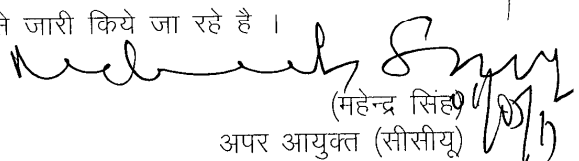 जारी किये जा रहे है ।
(महेन्द्र सिंह)
अपर आयुक्त (सीसीयू)